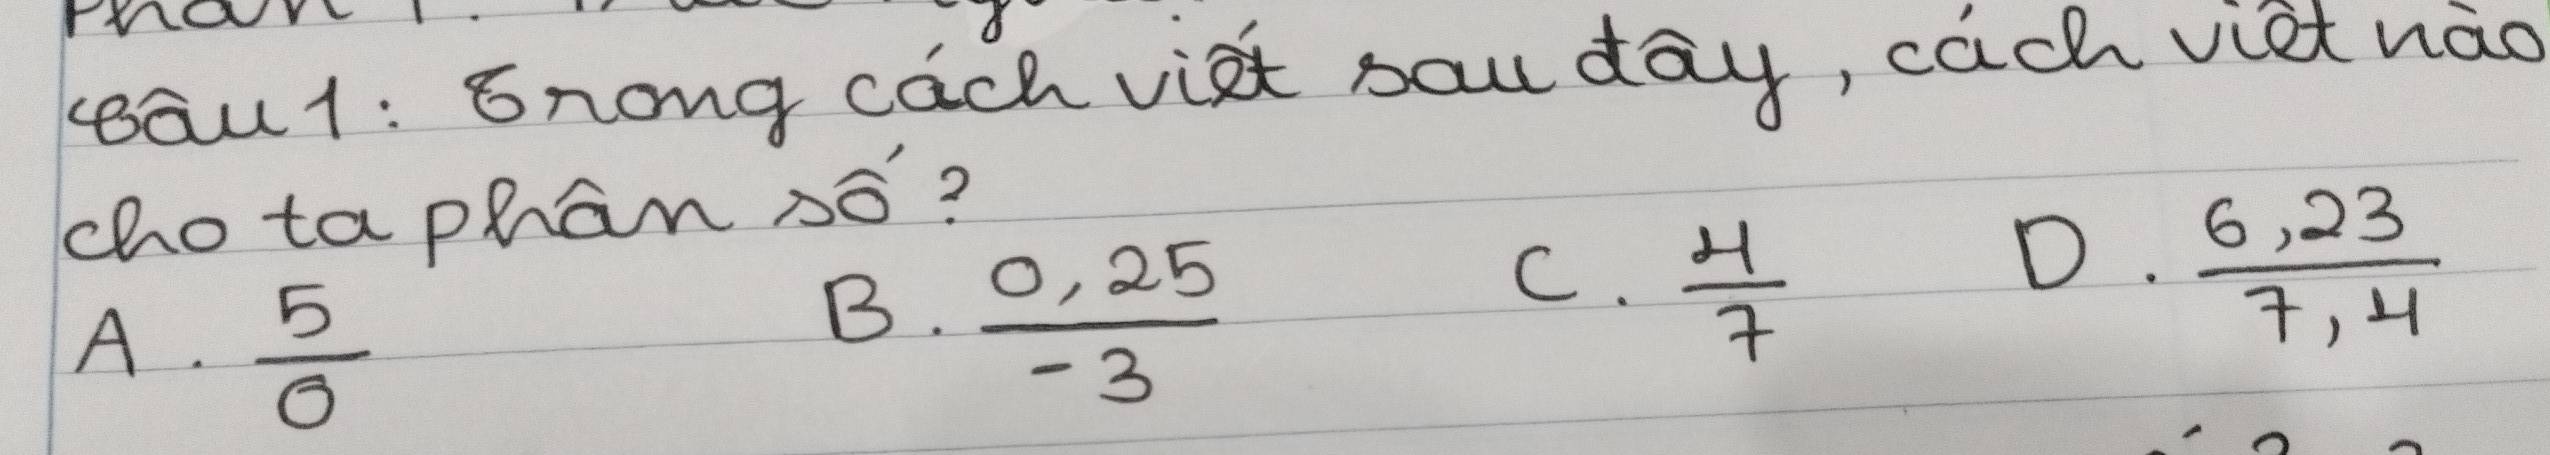 Câu 1: Trong cách viết sau đây, cách viết nào
cho ta phân số?
A. 5/0 B. 0,25/-3 C. 4/7 D. 6,23/7,4